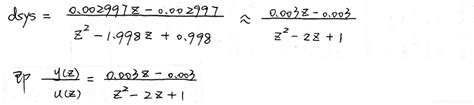 dsys = (0.002997z - 0.002997) / (z² - 1.998z + 0.998) ≈ (0.003z - 0.003) / (z² - 2z + 1)
即 y(z) / u(z) = (0.003z - 0.003) / (z² - 2z + 1)